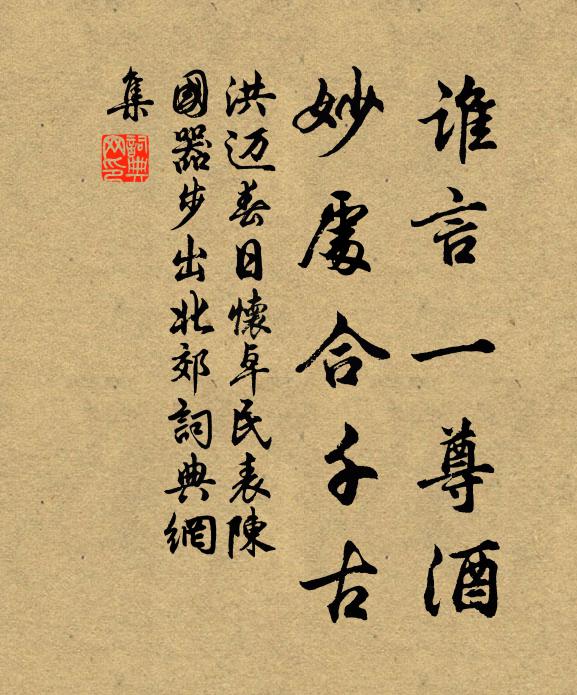 誰言一尊酒
妙處合千古
洪迈春日懷卓民表陳
國器步出北郊詞典網
集
詞典
网印